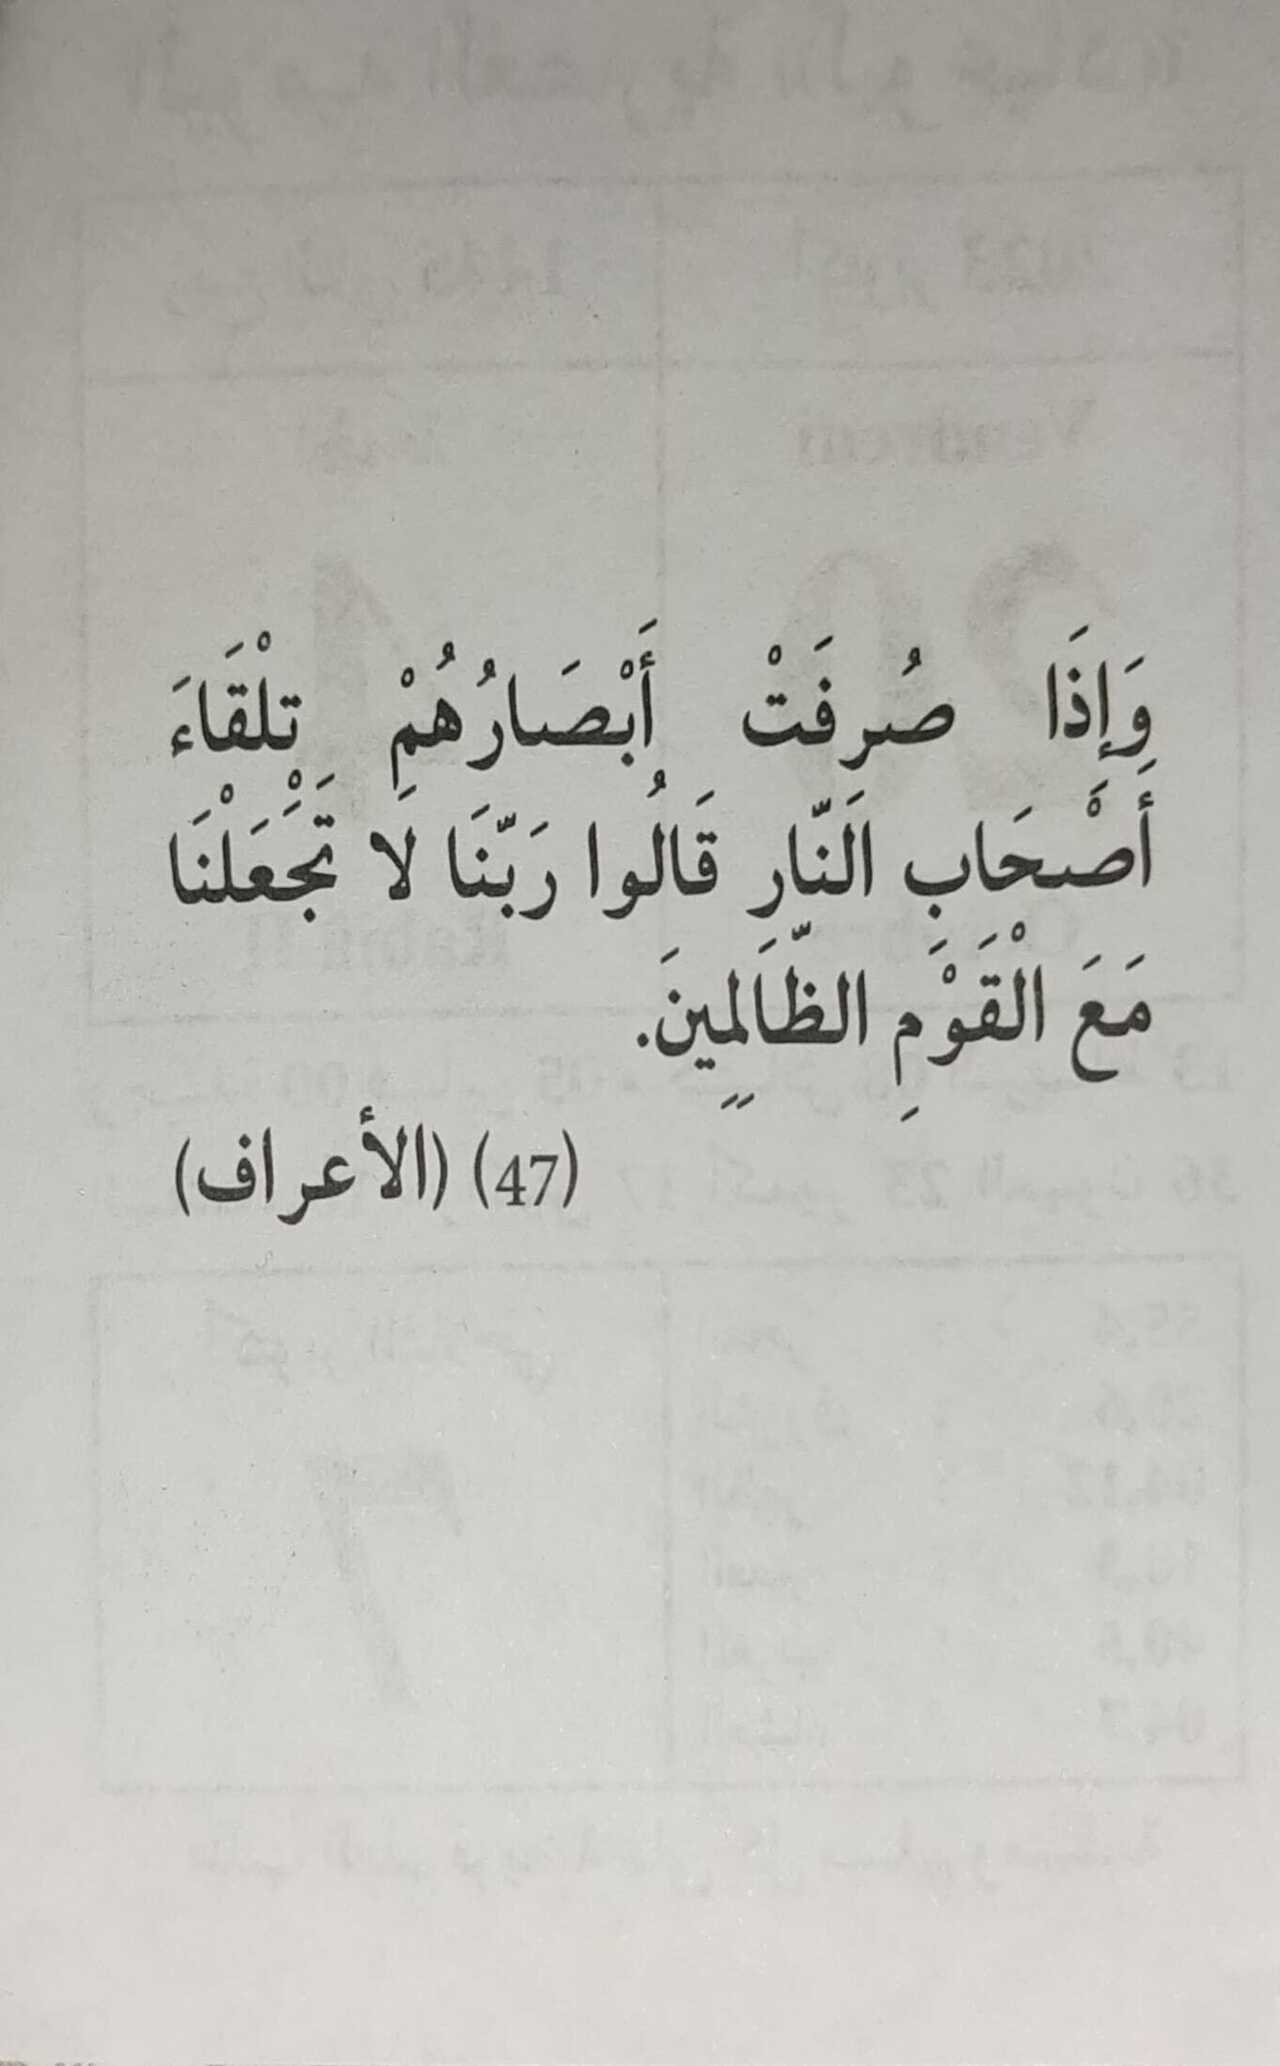 وَإِذَا صُرِفَتْ أَبْصَارُهُمْ تِلْقَاءَ
أَصْحَابِ النَّارِ قَالُوا رَبَّنَا لَا تَجْعَلْنَا
مَعَ الْقَوْمِ الظَّالِمِينَ.
(47) (الأعراف)